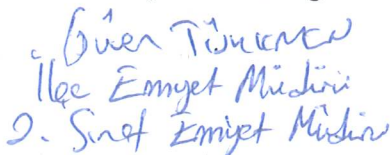 Güven TÜRKMEN
İlçe Emniyet Müdürü
2. Sınıf Emniyet Müdürü